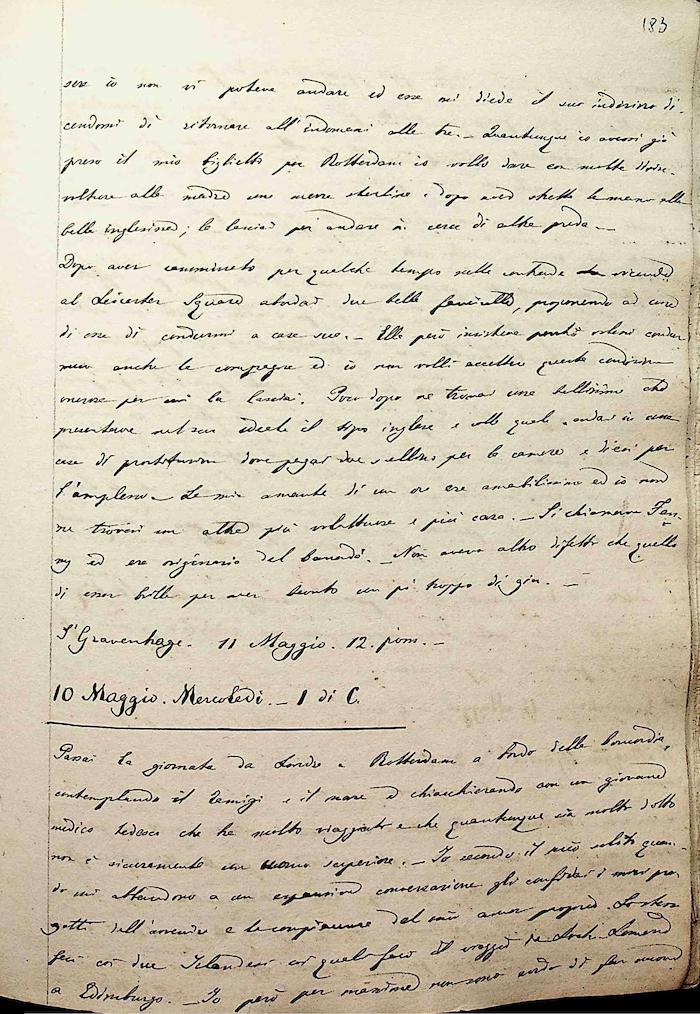 183
sera io non vi poteva andare ed essa mi diede il suo indirizzo di-
cendomi di ritornare all'indomani alle tre. - Quantunque io avessi già
preso il mio biglietto per Rotterdam io volli dare con molta disin-
voltura alla madre una mezza sterlina e dopo aver stretto la mano alla
bella inglesina, la lasciai per andare in cerca di altra preda. -
Dopo aver camminato per qualche tempo nelle contrade vicine
al Leicester Square abordai due belle fanciulle, proponendo ad una
di esse di condurmi a casa sua. - Ella però insisteva perché volessi condur
meco anche la compagna ed io non volli accettare questa condizione
onerosa per cui la lasciai. Poco dopo ne trovai una bellissima che
presentava nel suo ideale il tipo inglese e colla quale andai in una
casa di prostituzione dove pagai due scellini per la camera e dieci per
l'amplesso. - La mia amante di un'ora era amabilissima ed io non
ne trovai un'altra più voluttuosa e più cara. - Si chiamava Fan-
ny ed era originaria del Canadà. - Non aveva altro difetto che quello
di esser brilla per aver bevuto un po' troppo di gin. -
S'Gravenhage. 11 Maggio. 12. pom. -
10 Maggio. Mercoledì. - 1 di C.
Passai la giornata da Londra a Rotterdam a bordo della Concordia,
contemplando il Tamigi e il mare e chiacchierando con un giovane
medico tedesco che ha molto viaggiato e che quantunque sia molto dotto
non è sicuramente un uomo superiore. - Io secondo il mio solito quan-
do mi abbandono a un'espansiva conversazione gli confidai i miei pro-
getti dell'avvenire e le compiacenze del mio amor proprio. Lo stesso
feci coi due Irlandesi coi quali feci il viaggio da Loch-Lomond
a Edimburgo. - Io però per massima non sono avido di far